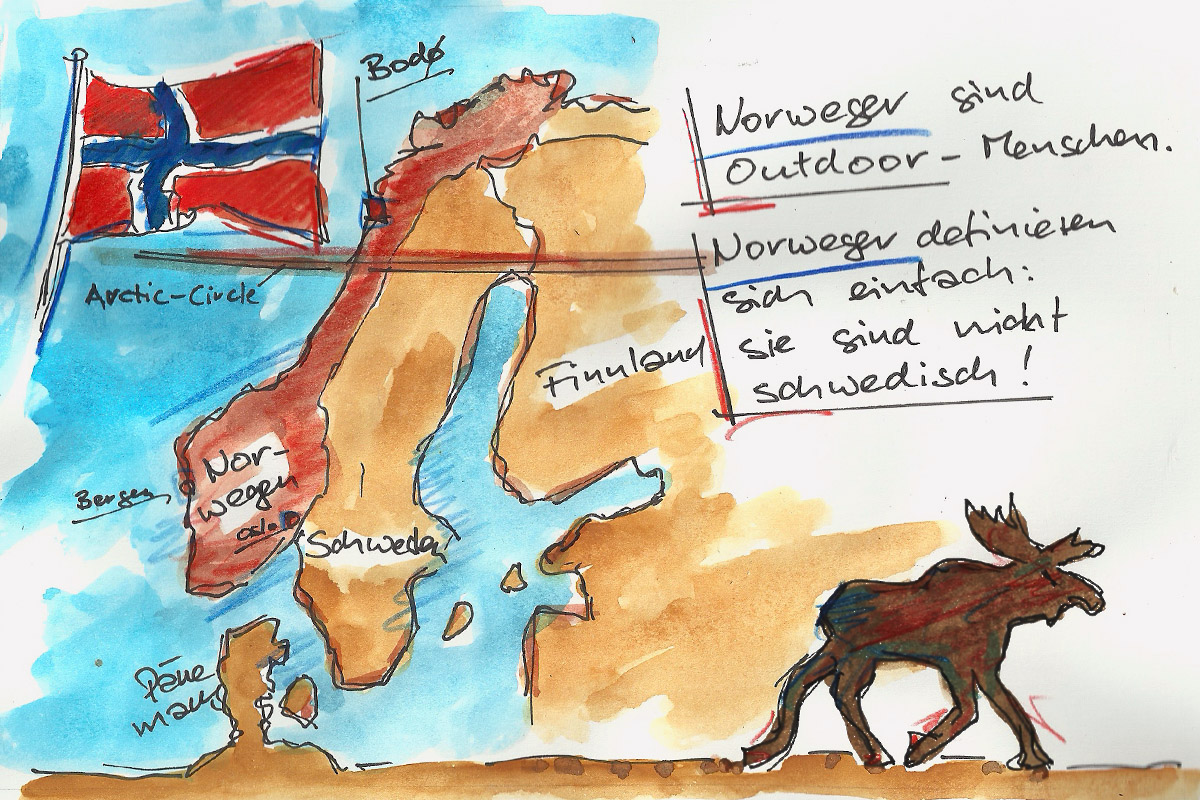 Bodø
Norweger sind
Outdoor - Menschen.
Norweger definieren
sich einfach:
sie sind nicht
schwedisch!
Arctic-Circle
Finnland
Nor-
wegen
Bergen
Oslo
Schweden
Däne
mark